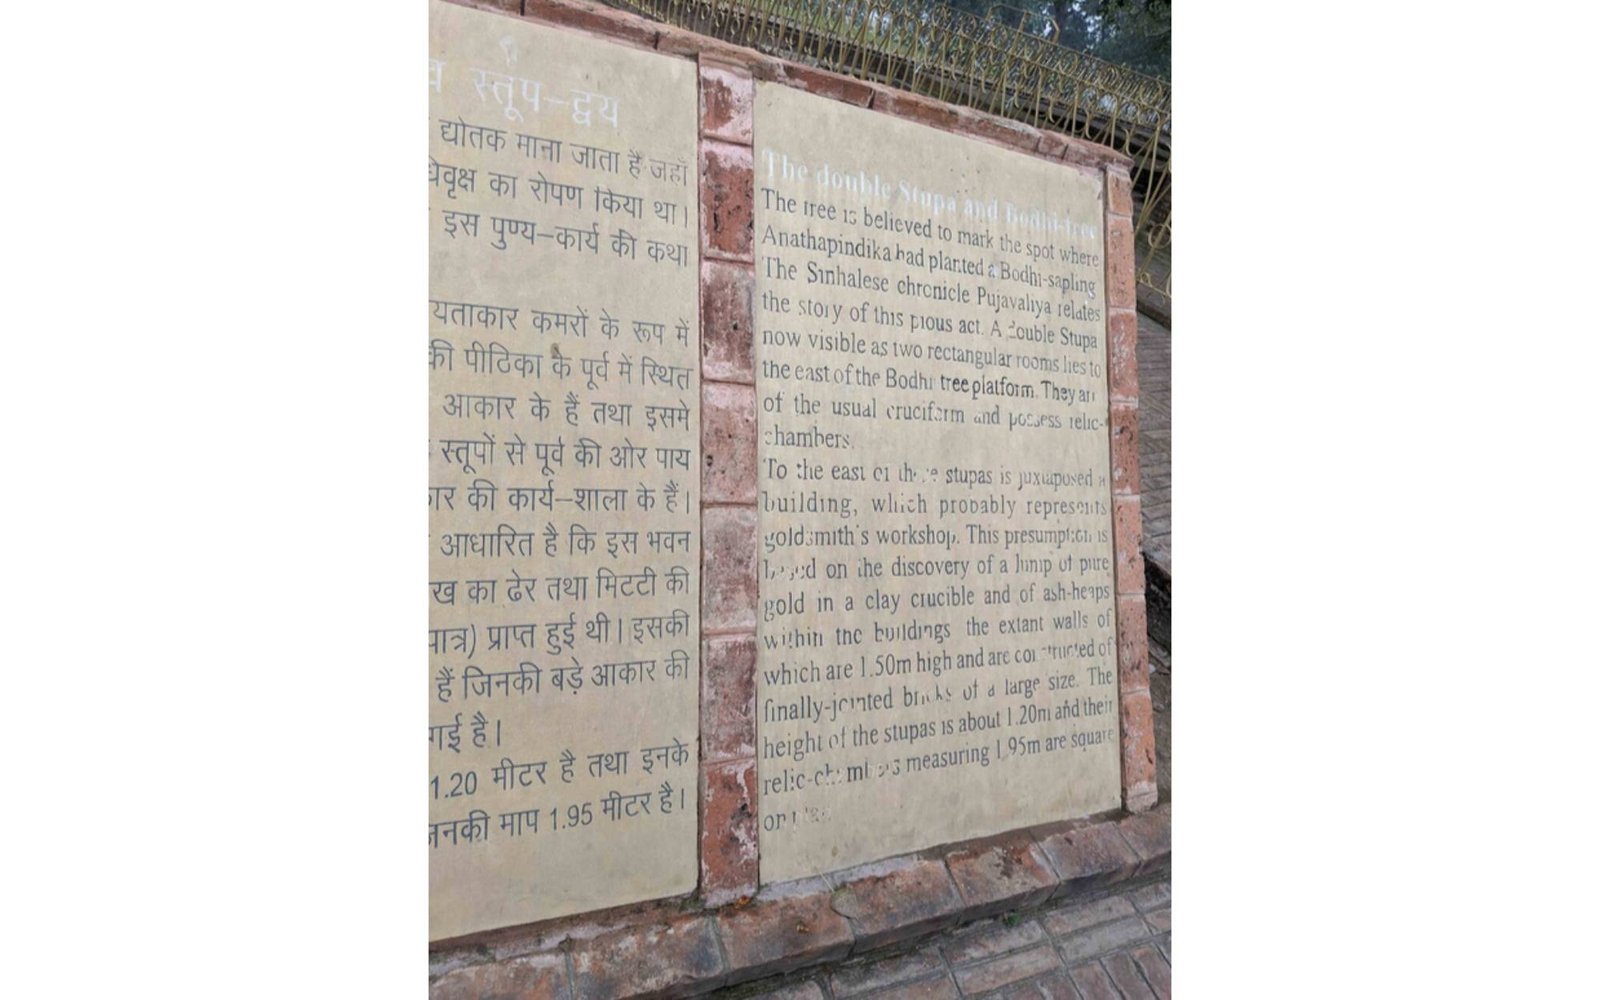 स्तूप–द्वय
द्योतक माना जाता है जहाँ
का रोपण किया था।
इस पुण्य–कार्य की कथा
कमरों के रूप में
की पीठिका के पूर्व में स्थित
आकार के हैं तथा इसमे
स्तूपों से पूर्व की ओर पाय
की कार्य–शाला के हैं।
आधारित है कि इस भवन
का ढेर तथा मिटटी की
प्राप्त हुई थी। इसकी
हैं जिनकी बड़े आकार की
गई है।
1.20 मीटर है तथा इनके
माप 1.95 मीटर है।
The double Stupa and Bodhi-tree
The tree is believed to mark the spot where
Anathapindika had planted a Bodhi-sapling
The Sinhalese chronicle Pujavaliya relates
the story of this pious act. A double Stupa
now visible as two rectangular rooms lies to
the east of the Bodhi tree platform. They are
of the usual cruciform and possess relic-
chambers.
To the east of these stupas is juxtaposed a
building, which probably represents
goldsmith's workshop. This presumption is
based on the discovery of a lump of pure
gold in a clay crucible and of ash-heaps
within the buildings the extant walls of
which are 1.50m high and are constructed of
finally-jointed bricks of a large size. The
height of the stupas is about 1.20m and their
relic-chambers measuring 1.95m are square
on plan.